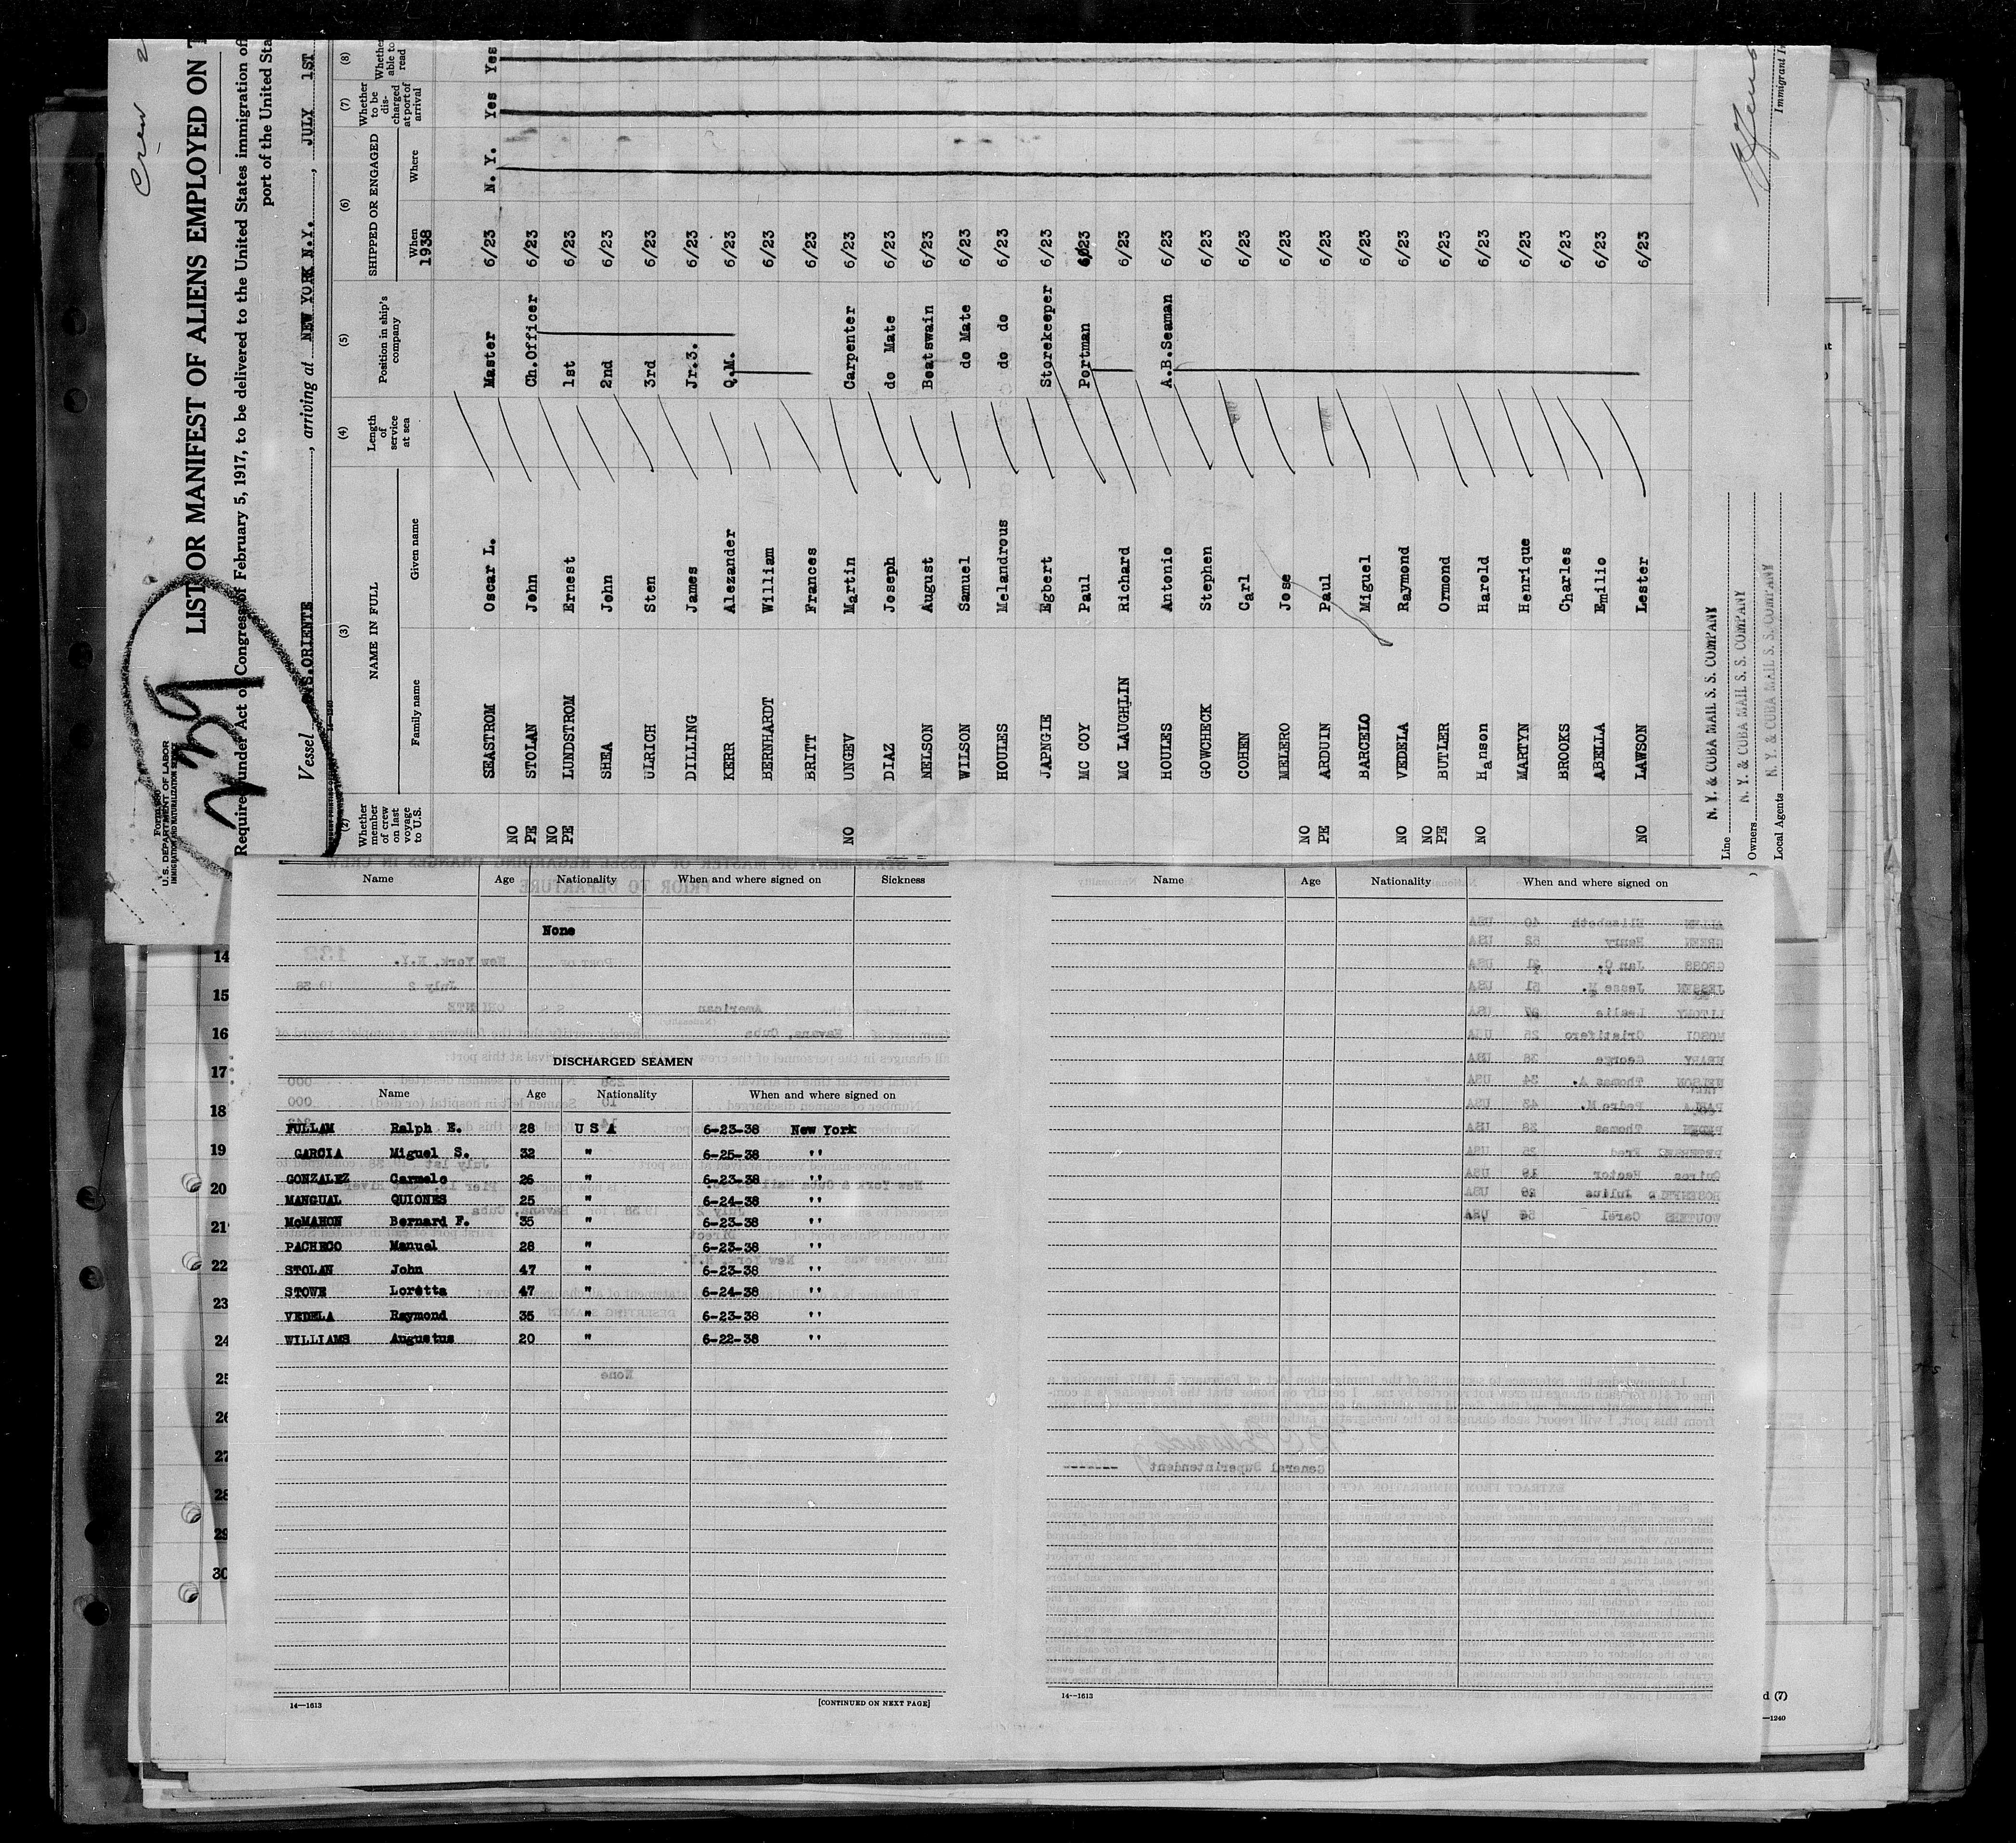 Crew 2
LIST OR MANIFEST OF ALIENS EMPLOYED ON T
Required under Act of Congress of February 5, 1917, to be delivered to the United States immigration of
port of the United Sta
U.S. DEPARTMENT OF LABOR
IMMIGRATION AND NATURALIZATION SERVICE
Vessel S.S.ORIENTE, arriving at NEW YORK N.Y., JULY 1ST
(2) (3) (4) (5) (6) (7) (8)
Whether member of crew on last voyage to U.S.
NAME IN FULL
Family name Given name
Length of service at sea
Position in ship's company
SHIPPED OR ENGAGED
When Where
1938
Whether to be discharged at port of arrival
Whether able to read
SEASTROM Oscar L. Master 6/23 N. Y. Yes Yes
NO PE STOLAN John Ch.Officer 6/23
NO PE LUNDSTROM Ernest 1st 6/23
SHEA John 2nd 6/23
ULRICH Sten 3rd 6/23
DILLING James Jr.3. 6/23
KERR Alezander Q.M. 6/23
BERNHARDT William 6/23
BRITT Frances 6/23
NO UNGEV Martin Carpenter 6/23
DIAZ Joseph do Mate 6/23
NELSON August Boatswain 6/23
WILSON Samuel do Mate 6/23
HOULES Melandrous do do 6/23
JAPNGIE Egbert Storekeeper 6/23
MC COY Paul Portman 6/23
MC LAUGHLIN Richard 6/23
HOULES Antonio A.B.Seaman 6/23
GOWCHECK Stephen 6/23
COHEN Carl 6/23
MELERO Jose 6/23
NO PE ARDUIN Paul 6/23
BARCELO Miguel 6/23
NO VEDELA Raymond 6/23
NO PE BUTLER Ormond 6/23
NO Hanson Harold 6/23
MARTYN Henrique 6/23
BROOKS Charles 6/23
ABELLA Emilio 6/23
NO LAWSON Lester 6/23
Line N. Y. & CUBA MAIL S. S. COMPANY
Owners N. Y. & CUBA MAIL S. S. COMPANY
Local Agents N. Y. & CUBA MAIL S. S. COMPANY
Name Age Nationality When and where signed on Sickness
None
DISCHARGED SEAMEN
Name Age Nationality When and where signed on
FULLAM Ralph E. 28 U S A 6-23-38 New York
GARCIA Miguel S. 32 " 6-25-38 ''
GONZALEZ Carmelo 26 " 6-23-38 ''
MANGUAL QUIONES 25 " 6-24-38 ''
McMAHON Bernard F. 35 " 6-23-38 ''
PACHECO Manuel 28 " 6-23-38 ''
STOLAN John 47 " 6-23-38 ''
STOWE Loretta 47 " 6-24-38 ''
VEDELA Raymond 35 " 6-23-38 ''
WILLIAMS Augustus 20 " 6-22-38 ''
14—1613
[CONTINUED ON NEXT PAGE]
Name Age Nationality When and where signed on
14—1613
14
15
16
17
18
19
20
21
22
23
24
25
26
27
28
29
30
d (7)
—1240